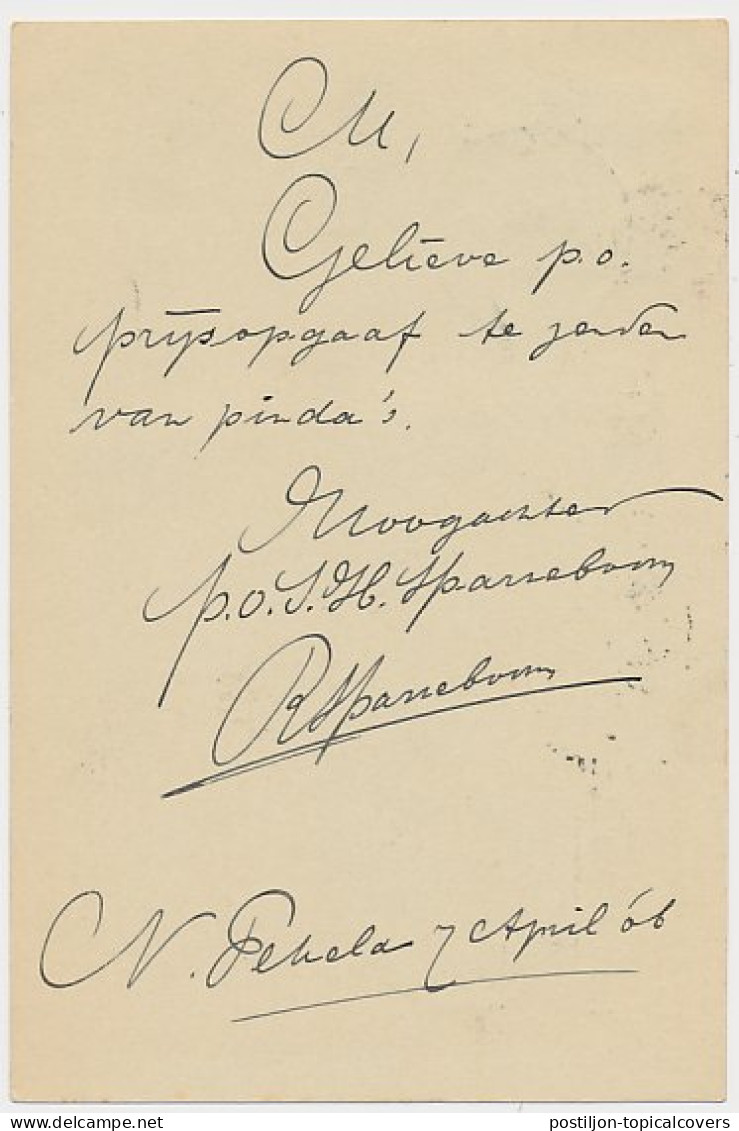 M,
Gelieve p.o.
prijsopgaaf te zenden
van pinda's.
Hoogachtend
p.o. S. H. Sparreboom
R Sparreboom
N. Pekela 7 April '06
postiljon-topicalcovers